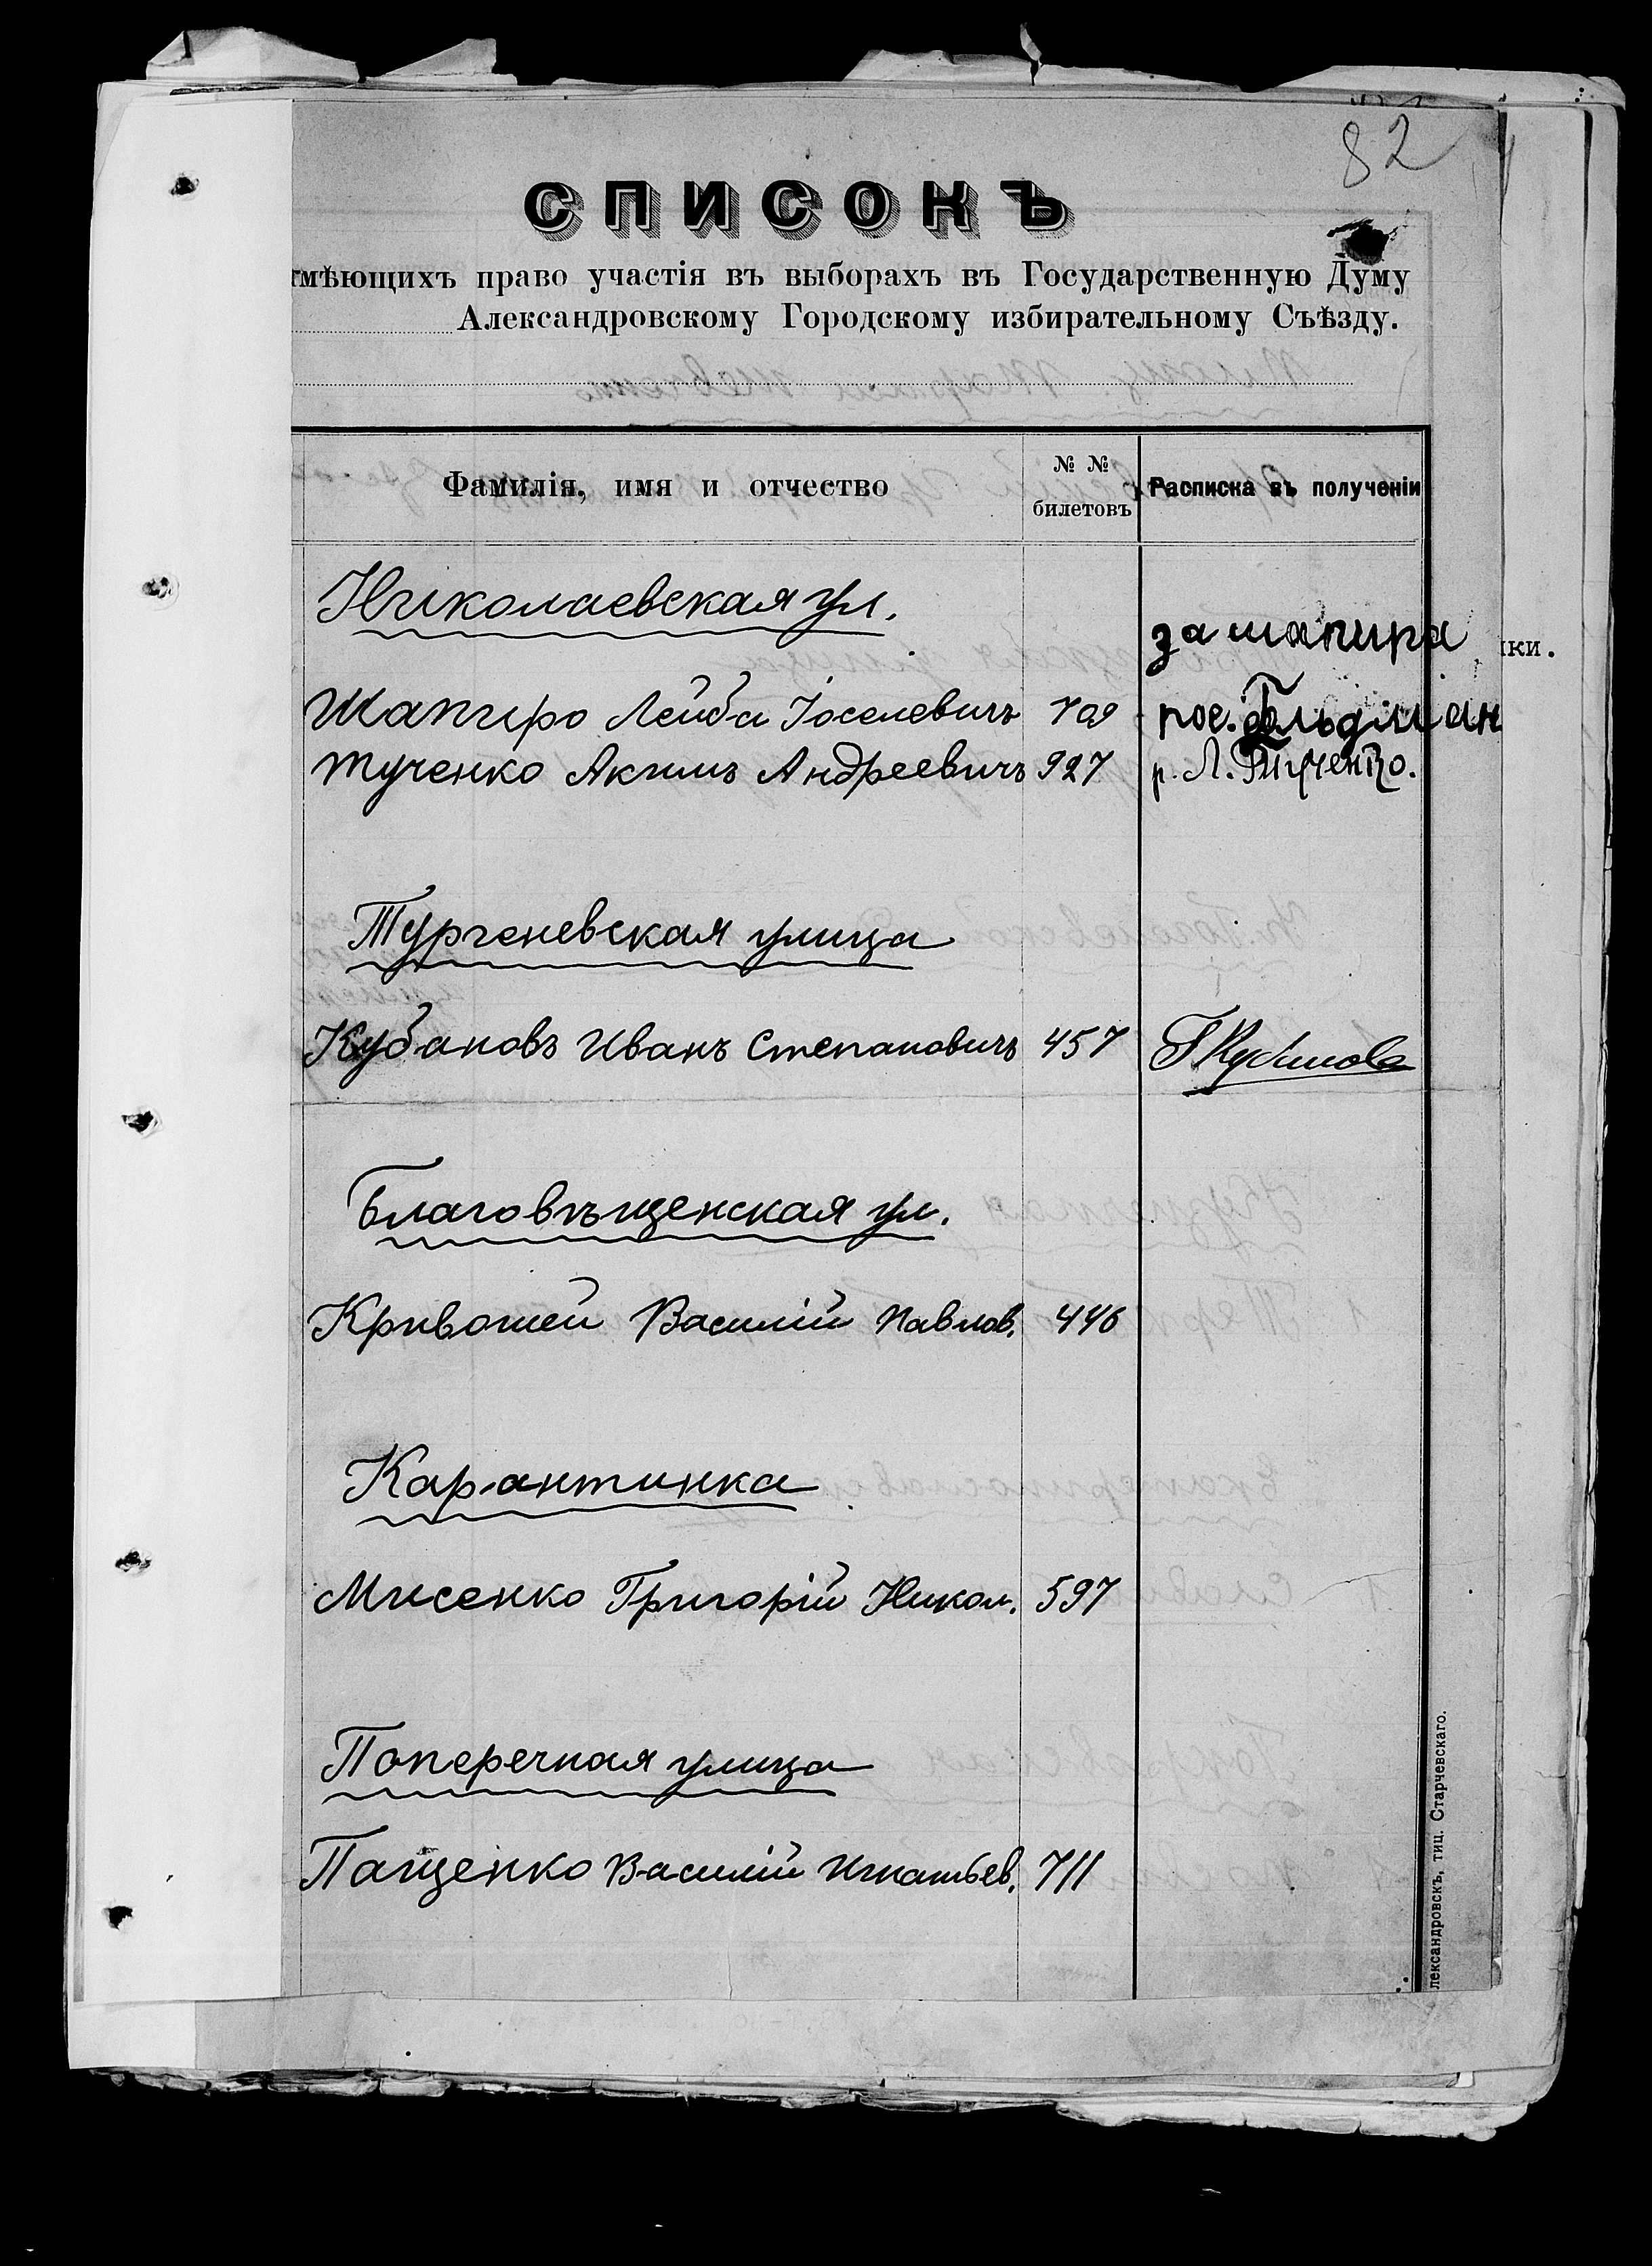 82
СПИСОКЪ
мѣющихъ право участія въ выборахъ въ Государственную Думу
Александровскому Городскому избирательному Съѣзду.
Фамилія, имя и отчество
№ №
билетовъ
Расписка въ полученіи
Николаевская ул.
за шапира
ки.
Шапиро Лейба Іоселевичъ 709 рос. Гольдман
Тученко Акимъ Андреевичъ 927 р. Л. Тученко.
Тургеневская улица
Кубановъ Иванъ Степановичъ 457 Кубанова
Благовѣщенская ул.
Кривошей Василій Павлов. 446
Карантинка
Мисенко Григорій Никол. 597
Поперечная улица
Пащенко Василій Игнатьев. 711
лександровскъ, тип. Старчевскаго.